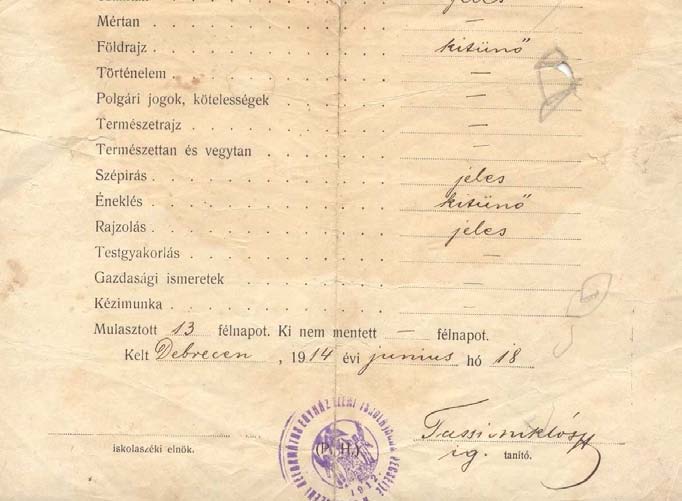 jeles
Mértan —
Földrajz kitünő
Történelem —
Polgári jogok, kötelességek —
Természetrajz —
Természettan és vegytan —
Szépírás jeles
Éneklés kitünő
Rajzolás jeles
Testgyakorlás —
Gazdasági ismeretek —
Kézimunka
Mulasztott 13 félnapot. Ki nem mentett — félnapot.
Kelt Debrecen, 1914 évi junius hó 18
(P. H.)
1912.
iskolaszéki elnök.
ig. tanító.